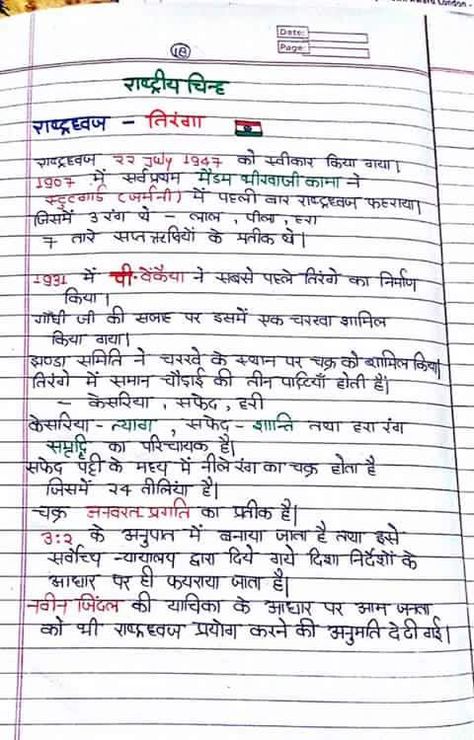 Date:
Page:
18
राष्ट्रीय चिन्ह
राष्ट्रध्वज - तिरंगा
राष्ट्रध्वज 22 July 1947 को स्वीकार किया गया।
1907 में सर्वप्रथम मैडम भीखाजी कामा ने
स्टुटगार्ड (जर्मनी) में पहली बार राष्ट्रध्वज फहराया।
जिसमें 3 रंग थे - लाल, पीला, हरा
7 तारे सप्तऋषियों के प्रतीक थे।
1931 में पी. वेंकैया ने सबसे पहले तिरंगे का निर्माण
किया।
गाँधी जी की सलाह पर इसमें एक चरखा शामिल
किया गया।
झण्डा समिति ने चरखे के स्थान पर चक्र को शामिल किया।
तिरंगे में समान चौड़ाई की तीन पट्टियाँ होती हैं।
- केसरिया, सफेद, हरी
केसरिया - त्याग, सफेद - शान्ति तथा हरा रंग
समृद्धि का परिचायक है।
सफेद पट्टी के मध्य में नीले रंग का चक्र होता है
जिसमें 24 तीलियां है।
चक्र अनवरत प्रगति का प्रतीक है।
3:2 के अनुपात में बनाया जाता है तथा इसे
सर्वोच्च न्यायालय द्वारा दिये गये दिशा निर्देशों के
आधार पर ही फयराया जाता है।
नवीन जिंदल की याचिका के आधार पर आम जनता
को भी राष्ट्रध्वज प्रयोग करने की अनुमति दे दी गई।